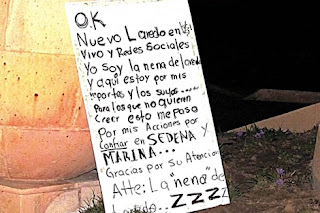 O.K
Nuevo Laredo en
Vivo y Redes Sociales
Yo soy la nena de Laredo
y aqui estoy por mis
reportes y los suyos...
Para los que no quieran
Creer esto me paso
Por mis Acciones por
Confiar en SEDENA y
MARINA...
"Gracias por su Atencion
Atte: La "nena" de
Laredo... ZZZZ